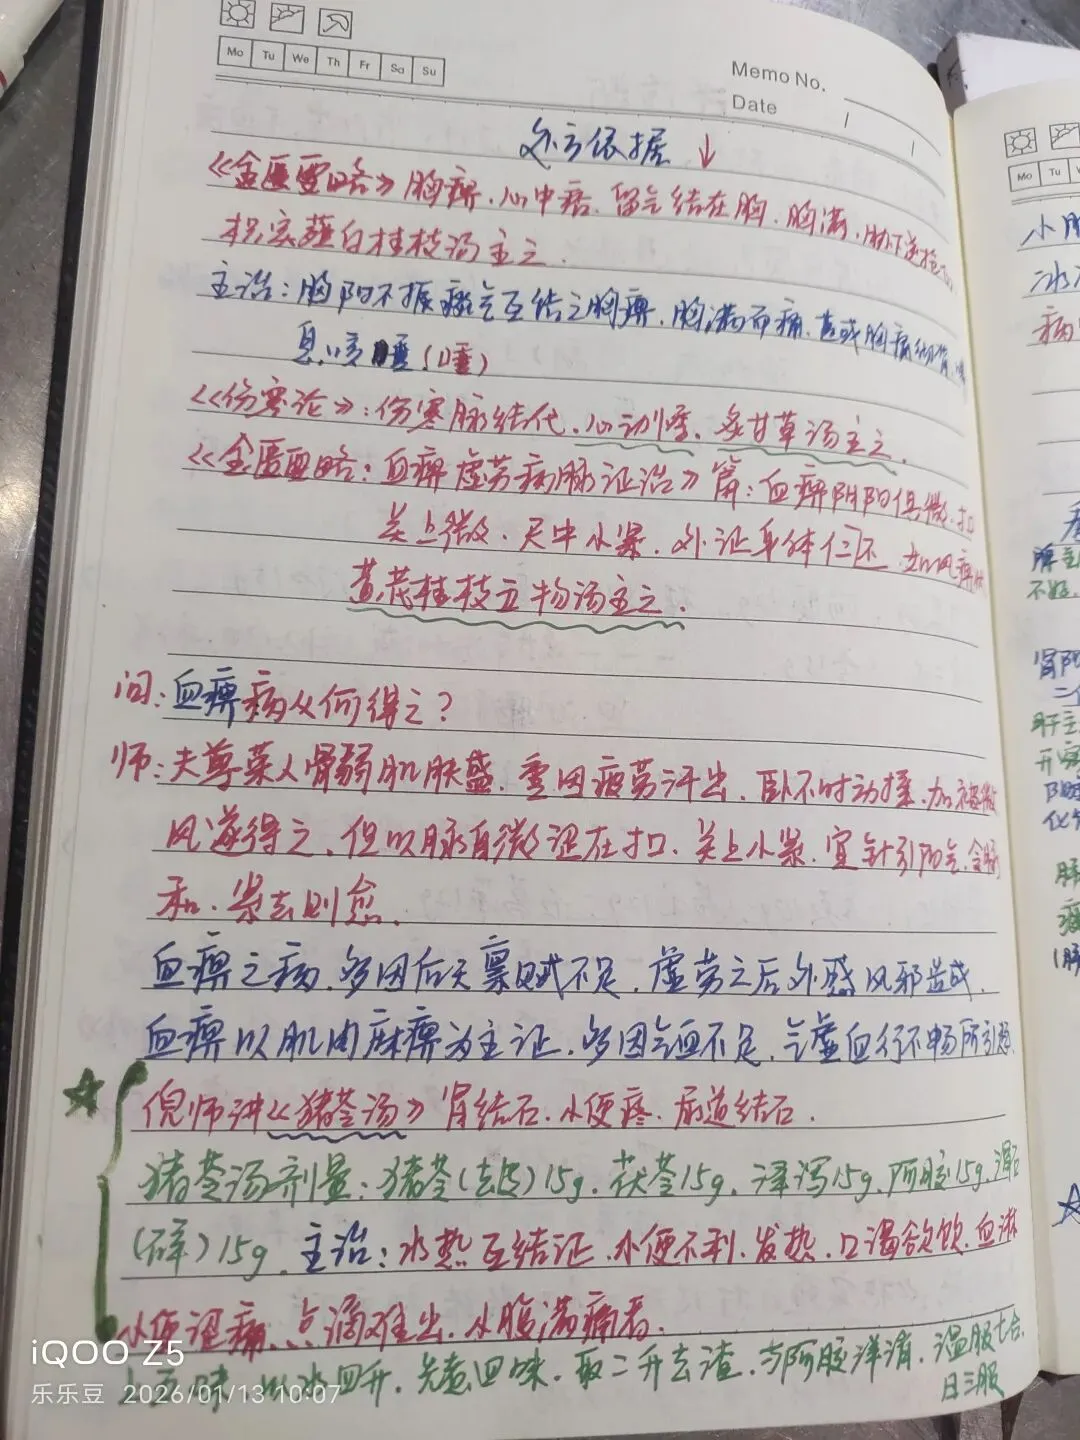 Mo Tu We Th Fr Sa Su
Memo No.
Date
处方依据 ↓
《金匮要略》胸痹、心中痞、留气结在胸、胸满、胁下逆抢心
枳实薤白桂枝汤主之.
主治:胸阳不振痰气互结之胸痹、胸满而痛、甚或胸痛彻背、喘
息、咳唾(唾)
《伤寒论》:伤寒脉结代、心动悸、炙甘草汤主之.
《金匮要略:血痹虚劳病脉证治》篇:血痹阴阳俱微、扣
关上微、尺中小紧、外证身体仁不、如风痹状
黄芪桂枝五物汤主之.
问:血痹病从何得之?
师:夫尊荣人骨弱肌肤盛、重因疲劳汗出、卧不时动摇、加被微
风遂得之、但以脉自微涩在扣、关上小紧、宜针引阳气、令脉
和、紧去则愈.
血痹之病、多因后天禀赋不足、虚劳之后外感风邪造成.
血痹以肌肉麻痹为主证、多因气血不足、气虚血行不畅所引起.
☆ 倪师讲《猪苓汤》肾结石、小便疼、尿道结石.
猪苓汤剂量:猪苓(去皮)15g、茯苓15g、泽泻15g、阿胶15g、滑石
(碎)15g. 主治:水热互结证、小便不利、发热、口渴欲饮、血淋
小便涩痛、点滴难出、小腹满痛者.
上五味 以水四升、先煮四味、取二升去渣、与阿胶烊消、温服七合、
日三服
Mo Tu
小
冰
病
脾主
不好.
肾阳
二
肝主
开窍
阴
化
iQOO Z5
乐乐豆 2026/01/13 10:07